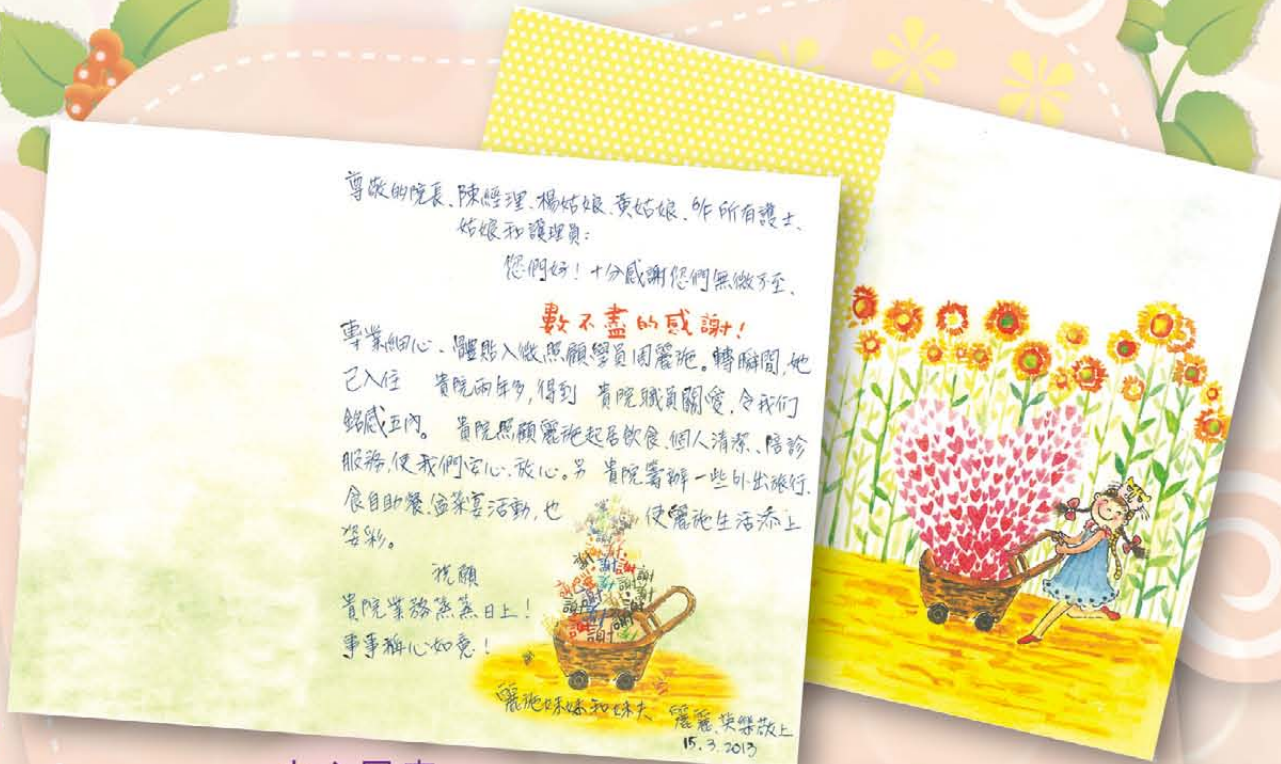 尊敬的院長、陳經理、楊姑娘、黃姑娘、所有護士、
姑娘和護理員：
您們好！十分感謝您們無微不至、
數不盡的感謝！
專業細心、體貼入微照顧學員周麗施。轉瞬間，她
已入住 貴院兩年多，得到 貴院職員關愛，令我们
銘感五內。 貴院照顧麗施起居飲食、個人清潔、陪診
服務，使我們安心、放心。另 貴院籌辦一些外出旅行、
食自助餐、盆菜宴活動，也 使麗施生活添上
姿彩。
祝願
貴院業務蒸蒸日上！
事事稱心如意！
謝
謝
謝
謝
麗施妹妹和妹夫 麗麗、英樂敬上
15.3.2013